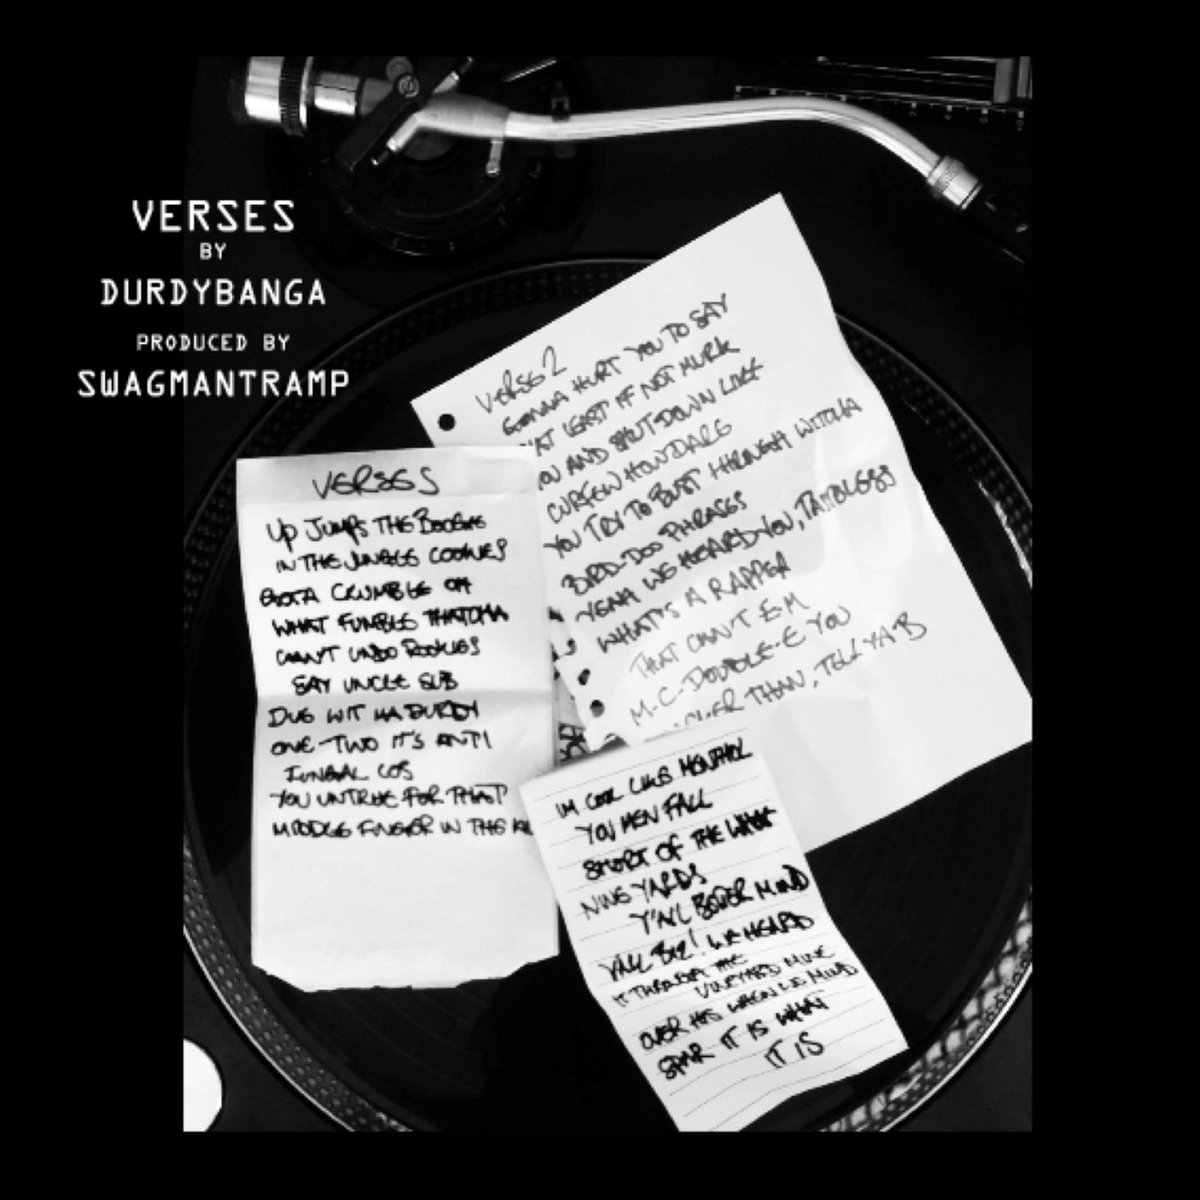 VERSES
BY
DURDYBANGA
PRODUCED BY
SWAGMANTRAMP
VERSE 2
GONNA HURT YOU TO SAY
AT LEAST IF NOT MURK
YOU AND SHUT DOWN LIKE
CURFEW HOW DARE
YOU TRY TO BUST THROUGH WITCHA
BIRD-DOO PHRASES
YEAH WE HEARD YOU, TASTELESS
WHAT'S A RAPPER
THAT CAN'T E-M
M.C-DOUBLE-E YOU
THAN, TELL YA B
VERSES
UP JUMPS THE BOOGIE
IN THE JUNGLE COOKIES
GOTTA CRUMBLE OH
WHAT FUMBLE THATCHA
CAN'T UNDO ROOKIES
SAY UNCLE SUB
DUE WIT HA DURDY
ONE-TWO IT'S ANTI
FUNGAL COS
YOU UNTRUE FOR THAT
MIDDLE FINGER IN THE
IM COOL LIKE MENTHOL
YOU MEN FALL
SHORT OF THE WHAT
NINE YARDS
Y'ALL BETTER MIND
YALL BIZ! WE HEARD
IT THROUGH THE
VINEYARD MINE
OVER HIS WHEN WE MIND
SPAR IT IS WHAT
IT IS